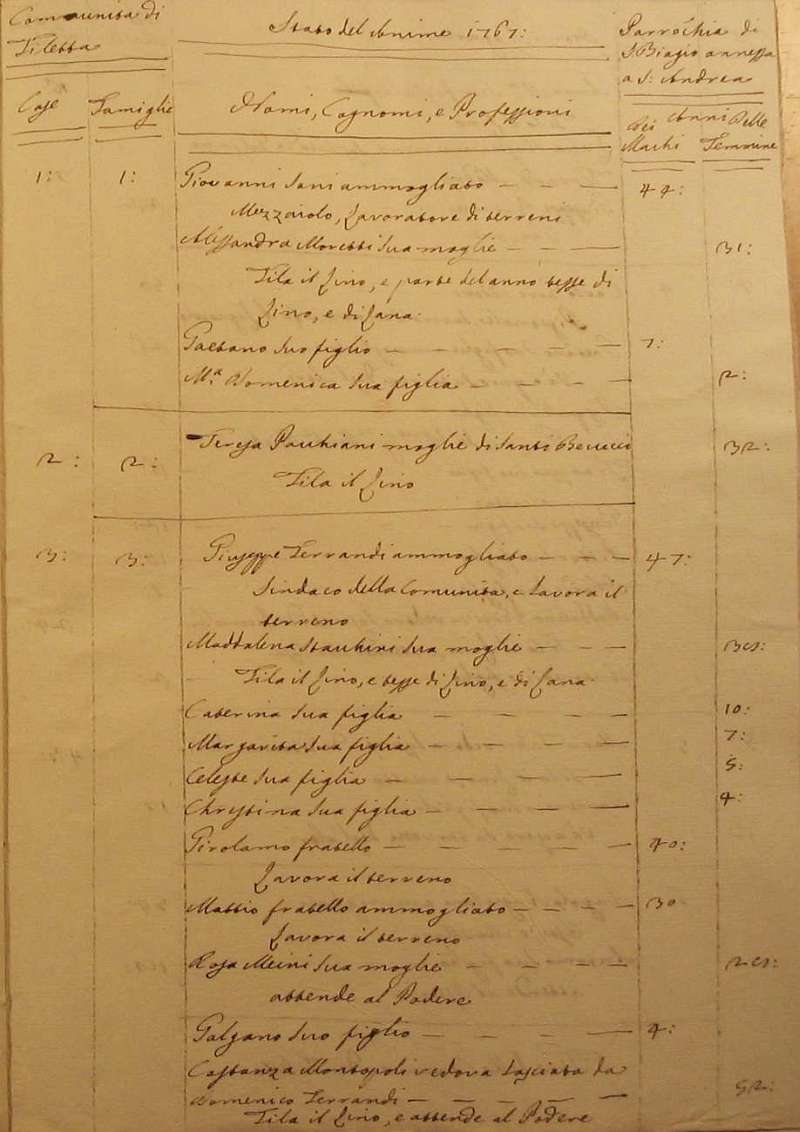 Comunita di
Filetta
Stato del Anime 1767:
Parrochia di
S. Biagio annessa
a S: Andrea
Case
Famiglie
Nomi, Cognomi, e Professioni
Anni
Dei
Maschi
Delle
Femmine
1: 1: Giovanni Sani ammogliato — — — 44:
Mezzaiolo, Lavoratore di terreni
Alessandra Moretti sua moglie — — — 31:
Fila il Lino, e parte del anno tesse di
Lino, e di Lana
Gaetano suo figlio — — — — — 7:
M.a Domenica sua figlia — — — — 2:
2: 2: Teresa moglie di Santo Benucci 32:
Fila il Lino
3: 3: Giuseppe Ferrandi ammogliato — — — 47:
Sindaco della Comunita, e Lavora il
terreno
Maddalena sua moglie — — —
Fila il Lino, e tesse di Lino, e di Lana
Caterina sua figlia — — — — 10:
Margarita sua figlia — — — — 7:
Celeste sua figlia — — — — 5:
Christina sua figlia — — — — 4:
Girolamo fratello — — — — — 40:
Lavora il terreno
Mattio fratello ammogliato — — — — 30
Lavora il terreno
Rosa Meini sua moglie — — — —
attende al Podere
Galgano suo figlio — — — — 4:
Costanza Montopoli vedova lasciata da
Domenico Ferrandi — — — — — 52:
Fila il Lino, e attende al Podere